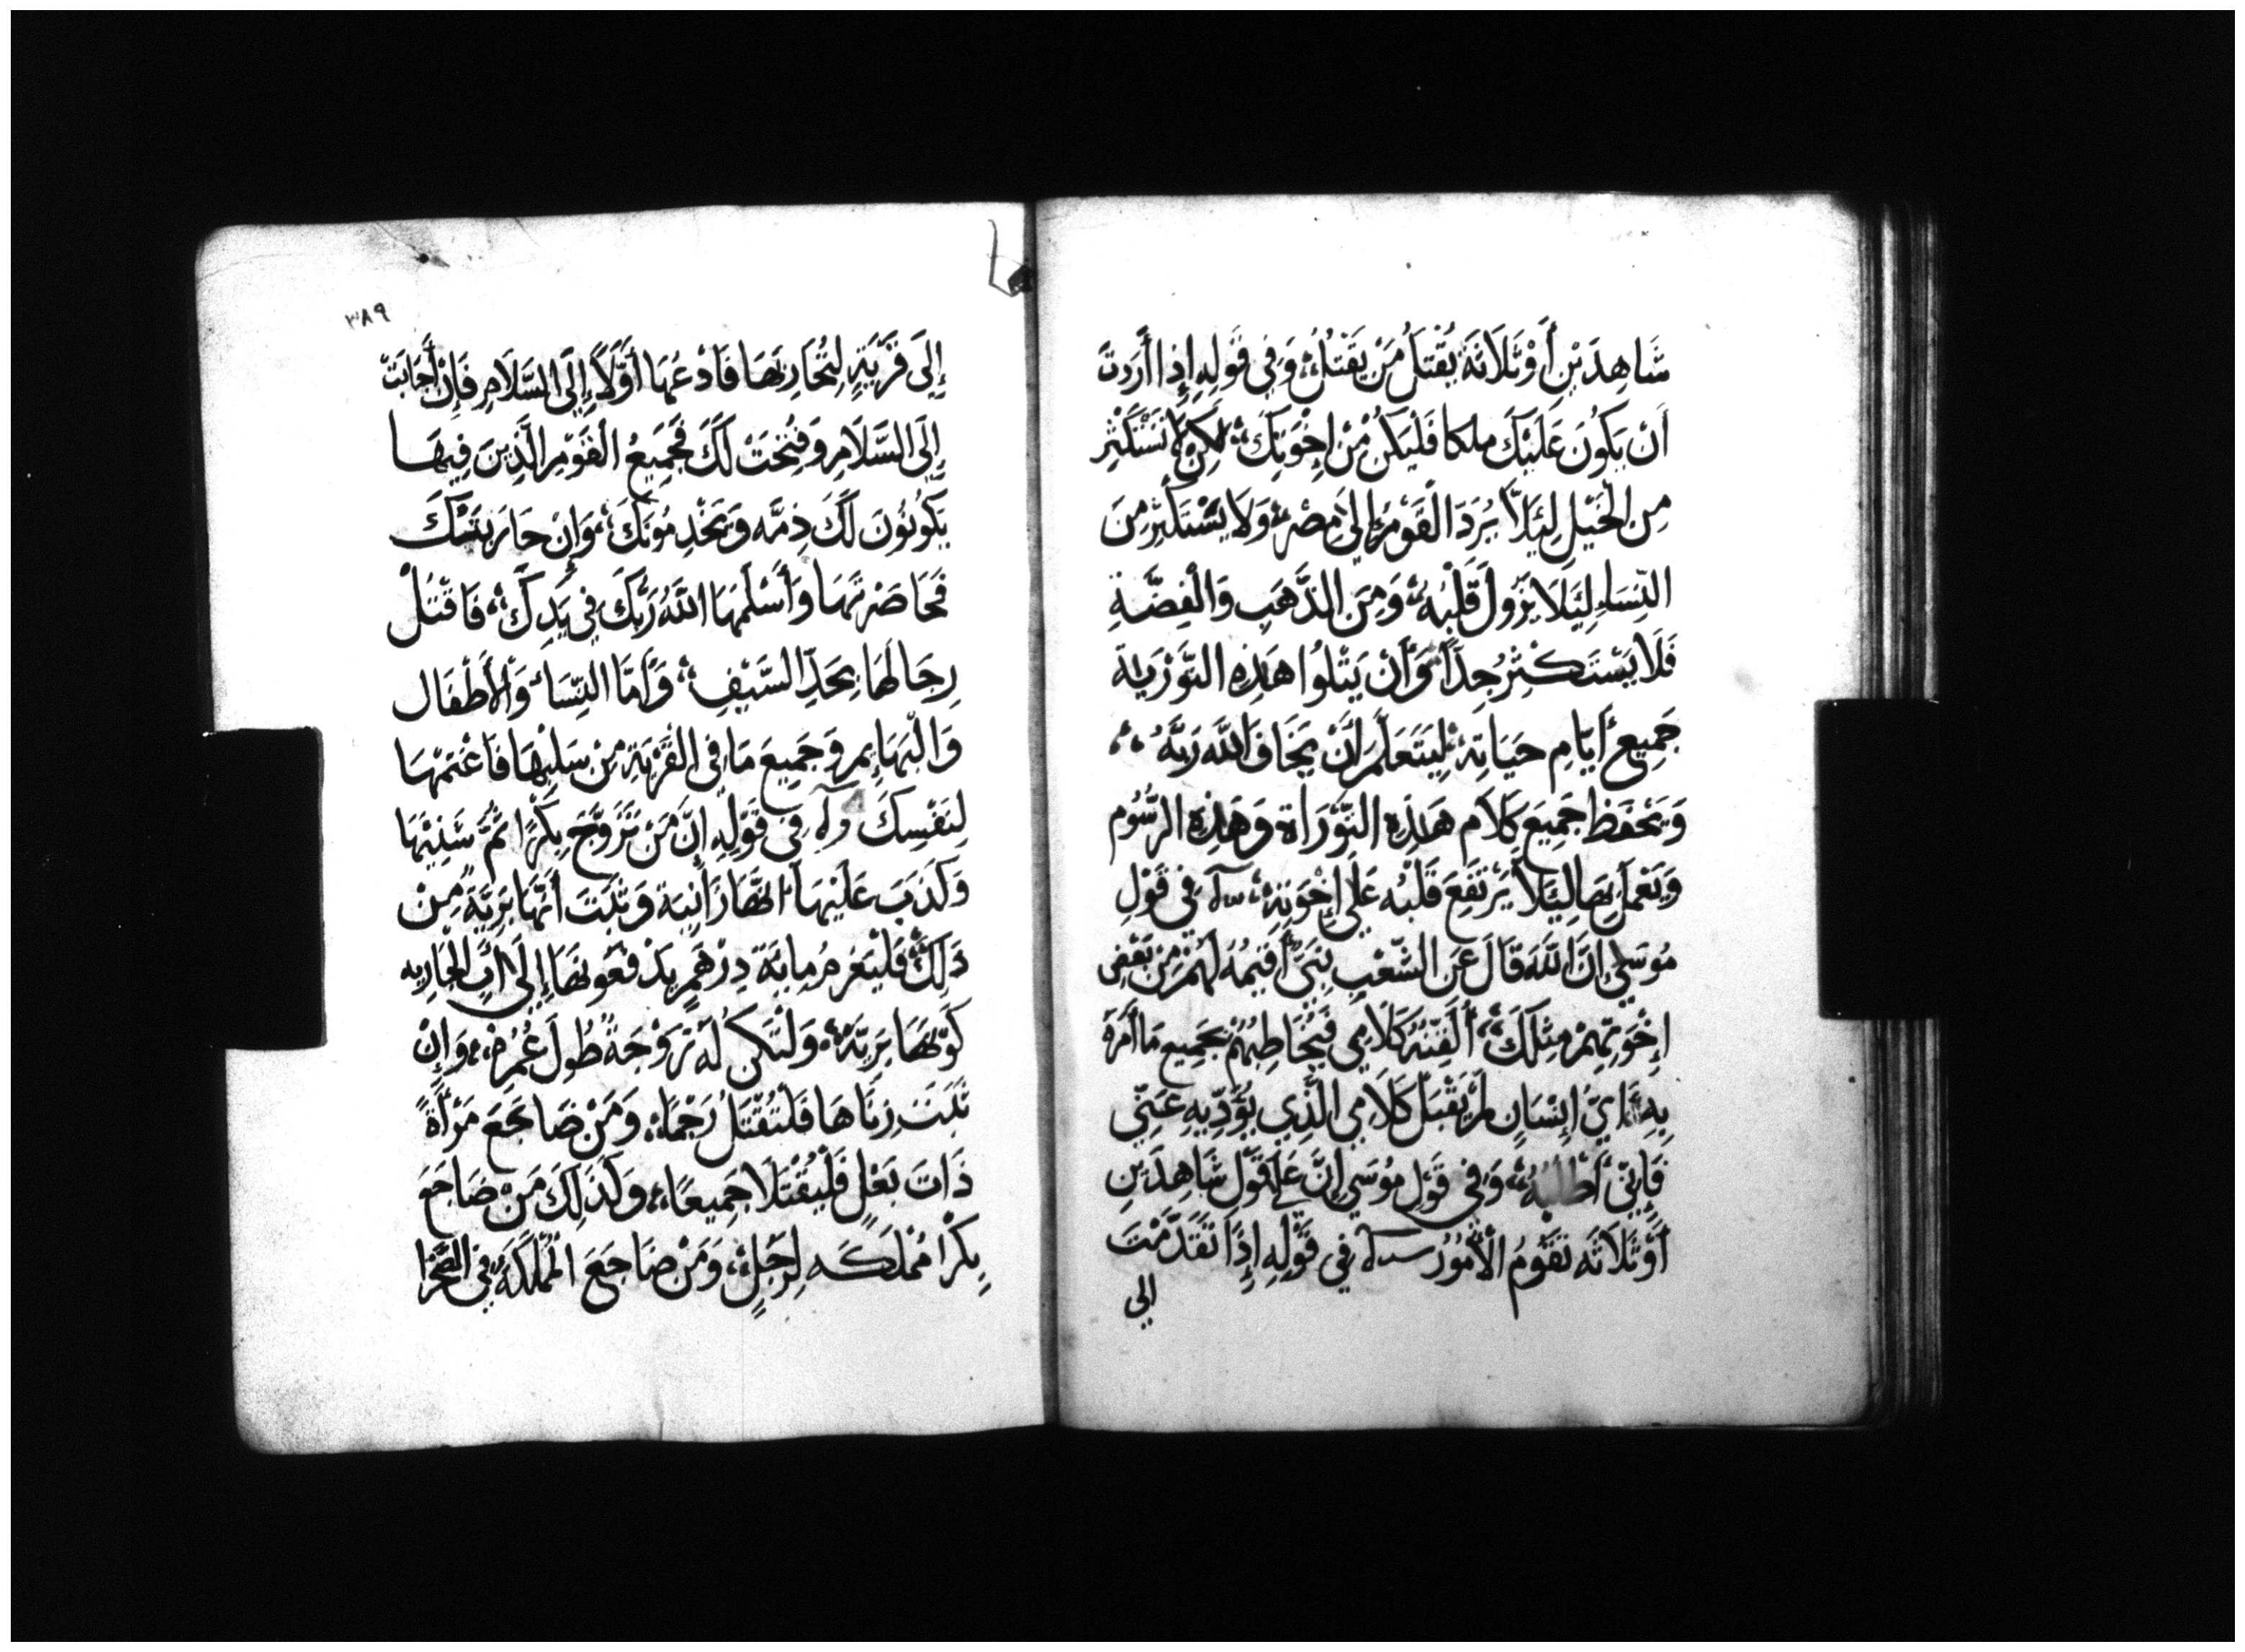 شَاهِدَيْنِ أَوْ ثَلَاثَةَ يُقْتَلُ مَنْ يَقْتُلُ، وَفِي قَوْلِهِ إِذَا أَرَدتَ
أَنْ يَكُونَ عَلَيْكَ ملكا فَلْيَكُنْ مِنْ إِخْوَتِكَ، لكِنْ لَا تَسْتَكْثِر
مِنَ الْخَيْلِ لِيَلَّا يُرَدَ الْقَوْمُ إِلَى مِصْرَ، وَلَا يَسْتَكْثِرْ مِنَ
النِّسَاءِ لِيَلَا يَزُولَ قَلْبُهُ، وَمِنَ الذَّهَبِ وَالْفِضَّةِ
فَلَا يَسْتَكْثِرْ جِدًّا، وَأَنْ يَتْلُوا هَذِهِ التَّوْرَيةَ
جَمِيعَ أَيَّامِ حَيَاتِهِ، لِيَتَعَلَّمَ أَنْ يَخَافَ اللَّهَ رَبَّهُ،
وَيَحْفَظ جَمِيعَ كَلَامِ هَذِهِ التَّوْرَاة وَهَذِهِ الرُّسُوم
وَيَعْمَل بِهَا لِيَلَّا يَرْتَفِعَ قَلْبُه عَلَى إِخْوَتِهِ، في قَوْلِ
مُوسَى إِنَّ اللَّهَ قَالَ عَن الشَّعْبِ نَبِيّ أُقِيمُهُ لَهُمْ مِنْ بَعْضِ
إِخْوَتِهِمْ مِثْلَكَ، أُلَقِّنُهُ كَلَامِي فَيُخَاطِبُهُمْ بِجَمِيعِ مَا أَمَرَهُ
بِهِ، أيّ إِنْسَانٍ لَمْ يَقْبَلْ كَلَامِي الَّذِي يُؤَدِّيهِ عَنِّي
فَإِنِّي أَطْلُبُهُ، وَفِي قَوْلِ مُوسَى إِنَّ عَلَى قَوْلِ شَاهِدَيْنِ
أَوْ ثَلَاثَه تَقُومُ الْأُمُورُ في قَوْلِهِ إِذَا تَقَدَّمْتَ
الي
٣٨٩
إِلَى قَرْيَةٍ لِتُحَارِبَهَا فَادْعُهَا أَوَّلًا إِلَى السَّلَامِ فَإِنْ أَجَابَتْ
إِلَى السَّلَامِ وَفُتِحَتْ لَكَ فَجَمِيعُ الْقَوْمِ الَّذِينَ فِيهَا
يَكُونُونَ لَكَ ذِمَّه وَيَخْدِمُونَكَ، وَإِنْ حَارَبَتْكَ
فَحَاصَرْتَهَا وَأَسْلَمَهَا اللَّهُ رَبُّكَ فِي يَدِكَ، فَاقْتُلْ
رِجَالَهَا بِحَدِّ السَّيْفِ، وَأَمَّا النِّسَاءُ وَالْأَطْفَال
وَالْبَهَايِم وَجَمِيعَ مَا فِي الْقَرْيَةِ مِنْ سَلْبِهَا فَاغْنَمْهَا
لِنَفْسِكَ فِي قَوْلِهِ إِنَّ مَنْ تَزَوَّجَ بِكْرًا ثُمَّ شَنِيَهَا
وَكَذَبَ عَلَيْهَا انهَا زَانِيَة وَثَبَتَ أَنَّهَا بَرِيَّةً مِنْ
ذَلِكَ، فَلْيَغْرمُ مِايَةَ دِرْهَمٍ يَدْفَعُونَهَا إِلَى أَبِ الْجَارِيه
كَوْنهَا بَرِيَّةً، وَلْتَكُن لَهُ زَوْجَةً طُولَ عُمُرِهِ، وَإِنْ
ثَبَتَ زِنَاهَا فَلْتُقْتَلُ رَجْمًا، وَمَنْ ضَاجَعَ مَرْأَةً
ذَاتَ بَعْلٍ فَلْيُقْتَلَا جَمِيعًا، وَكَذَلِكَ مَنْ ضَاجَعَ
بِكْرًا مُمْلَكَه لِرَجُلٍ، وَمَنْ ضَاجَعَ الْمُمْلَكَة فِي الصَّحْرَا